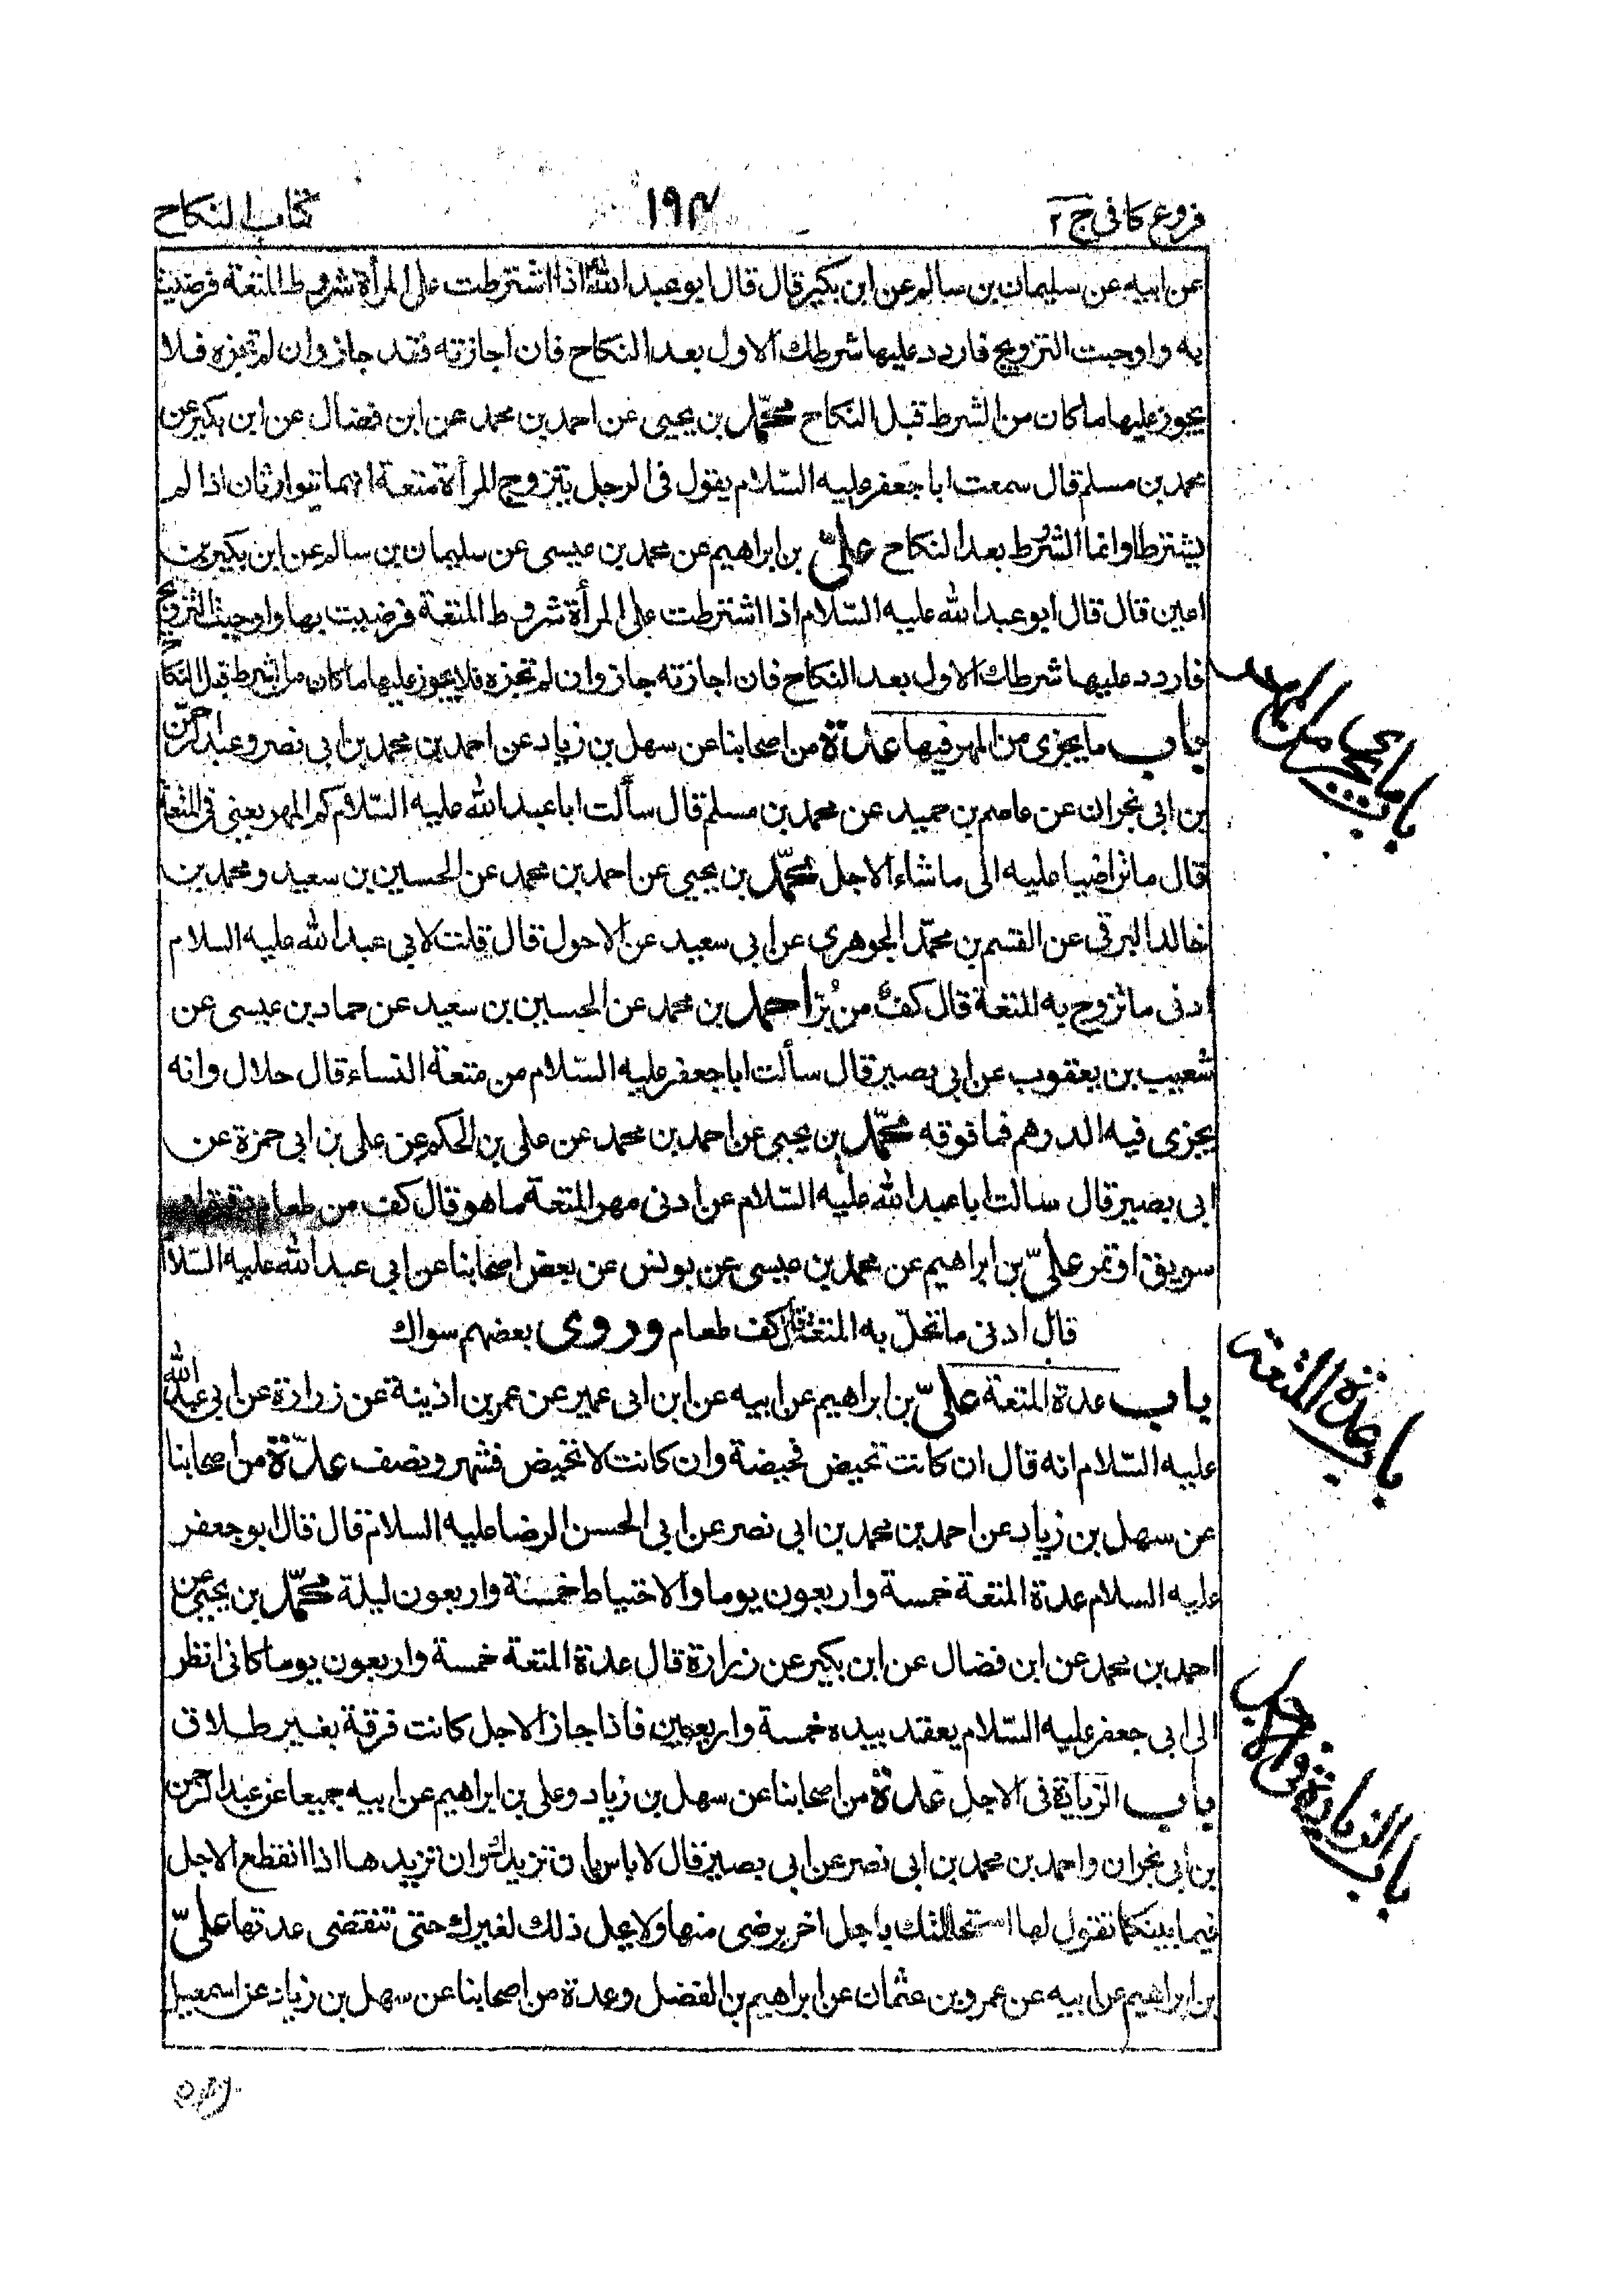 فروع كافى ج ٢
١٩٤
كتاب النكاح
عن ابيه عن سليمان بن سالم عن ابن بكير قال قال ابو عبد الله ع اذا اشترطت على المرأة شروط المتعة فرضيت
به واوجبت التزويج فاردد عليها شرطك الاول بعد النكاح فان اجازته فقد جاز وان لم تجزه فلا
يجوز عليها ما كان من الشرط قبل النكاح محمّد بن يحيى عن احمد بن محمد عن ابن فضال عن ابن بكير عن
محمد بن مسلم قال سمعت ابا جعفر عليه السّلام يقول فى الرجل يتزوج المرأة متعة انهما يتوارثان اذا لم
يشترطا وانما الشرط بعد النكاح علىّ بن ابراهيم عن محمد بن عيسى عن سليمان بن سالم عن ابن بكير بن
اعين قال قال ابو عبد الله عليه السّلام اذا اشترطت على المرأة شروط المتعة فرضيت بها واوجبت التزويج
فاردد عليها شرطك الاول بعد النكاح فان اجازته جاز وان لم تجزه فلا يجوز عليها ما كان من الشرط قبل النكا
باب ما يجزى من المهر فيها عدة من اصحابنا عن سهل بن زياد عن احمد بن محمد بن ابى نصر وعبد الرحمن
بن ابى نجران عن عاصم بن حميد عن محمد بن مسلم قال سألت ابا عبد الله عليه السّلام كم المهر يعنى فى المتعة
قال ما تراضيا عليه الى ما شاء الاجل محمّد بن يحيى عن احمد بن محمد عن الحسين بن سعيد ومحمد بن
خالد البرقى عن القسم بن محمّد الجوهرى عن ابى سعيد عن الاحول قال قلت لابى عبد الله عليه السلام
ادنى ما تزوج به المتعة قال كف من بُرّ احمد بن محمد عن الحسين بن سعيد عن حماد بن عيسى عن
شعيب بن يعقوب عن ابى بصير قال سألت ابا جعفر عليه السّلام من متعة النساء قال حلال وانه
يجزى فيه الدرهم فما فوقه محمّد بن يحيى عن احمد بن محمد عن على بن الحكم عن على بن ابى حمزة عن
ابى بصير قال سالت ابا عبد الله عليه السّلام عن ادنى مهر المتعة ما هو قال كف من طعام
سويق او تمر علىّ بن ابراهيم عن محمد بن عيسى عن يونس عن بعض اصحابنا عن ابى عبد الله عليه السّلا
قال ادنى ما تحلّ به المتعة قال كف طعام وروى بعضهم سواك
باب عدة المتعة علىّ بن ابراهيم عن ابيه عن ابن ابى عمير عن عمر بن اذينة عن زرارة عن ابى عبد الله
عليه السّلام انه قال ان كانت تحيض فحيضة وان كانت لا تحيض فشهر ونصف عدّة من اصحابنا
عن سهل بن زياد عن احمد بن محمد بن ابى نصر عن ابى الحسن الرضا عليه السلام قال قال ابو جعفر
عليه السلام عدة المتعة خمسة واربعون يوما والاحتياط خمسة واربعون ليلة محمّد بن يحيى عن
احمد بن محمد عن ابن فضال عن ابن بكير عن زرارة قال عدة المتعة خمسة واربعون يوما كانى انظر
الى ابى جعفر عليه السّلام يعقد بيده خمسة واربعين فاذا جاز الاجل كانت فرقة بغير طلاق
باب الزيادة فى الاجل عدة من اصحابنا عن سهل بن زياد وعلى بن ابراهيم عن ابيه جميعا عن عبد الرحمن
بن ابى نجران واحمد بن محمد بن ابى نصر عن ابى بصير قال لا باس بان تزيدك وان تزيدها اذا انقطع الاجل
فيما بينكما تقول لها استحللتك باجل اخر برضى منها ولا يحل ذلك لغيرك حتى تنقضى عدتها علىّ
بن ابراهيم عن ابيه عن عمرو بن عثمان عن ابراهيم بن الفضل وعدة من اصحابنا عن سهل بن زياد عن اسمعيل
باب ما يجزى من المهر
باب عدة المتعة
باب الزيادة فى الاجل